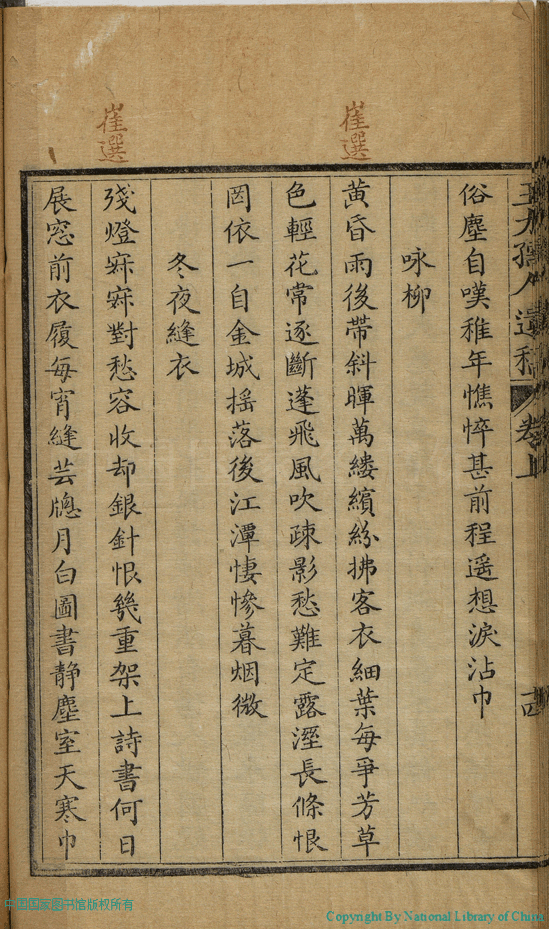 俗塵自嘆稚年憔悴甚前程遥想淚沾巾
咏柳
黃昏雨後帶斜暉萬縷繽紛拂客衣細葉每爭芳草
色輕花常逐斷蓬飛風吹疎影愁難定露溼長條恨
罔依一自金城揺落後江潭悽慘暮烟微
冬夜縫衣
殘燈寂寂對愁容收却銀針恨幾重架上詩書何日
展窓前衣履每宵縫芸牕月白圖書静塵室天寒巾
崔選
崔選
遺稿
卷上
中国国家图书馆版权所有
Copyright By National Library of China